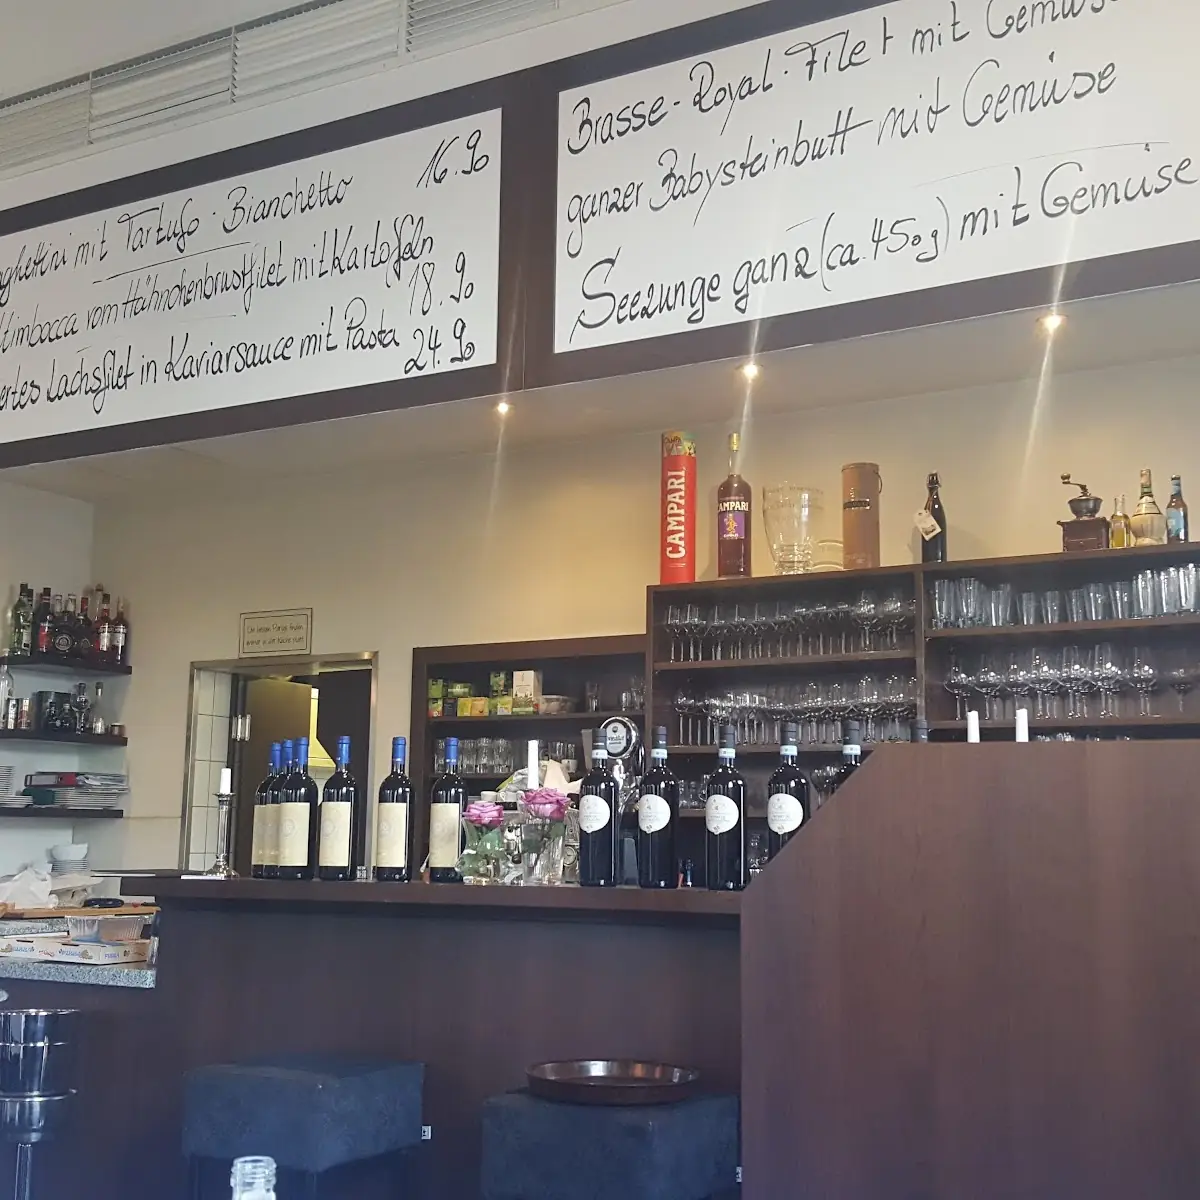 ghettini mit Tartufo · Bianchetto 16.90
ltimbocca vom Hähnchenbrustfilet mit Kartoffeln 18.90
ertes Lachsfilet in Kaviarsauce mit Pasta 24.90
Brasse-Royal-Filet mit Gemüse
ganzer Babysteinbutt mit Gemüse
Seezunge ganz (ca. 450g) mit Gemüse
CAMPARI
CAMPARI